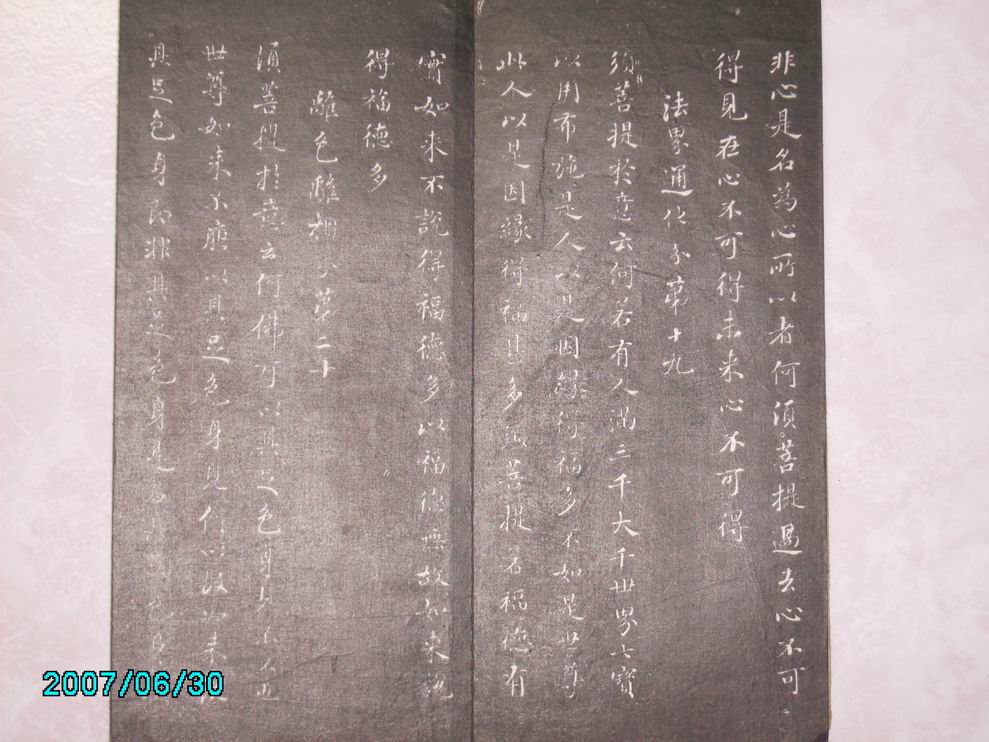 非心是名為心所以者何須菩提過去心不可
得見在心不可得未来心不可得
法界通化分第十九
須菩提於意云何若有人滿三千大千世界七寶
以用布施是人以是因緣得福多不如是世尊
此人以是因緣得福甚多須菩提若福德有
實如来不說得福德多以福德無故如来說
得福德多
離色離相分第二十
須菩提於意云何佛可以具足色身見不不也
世尊如来不應以具足色身見何以故如来說
具足色身即非具足色身是名
2007/06/30